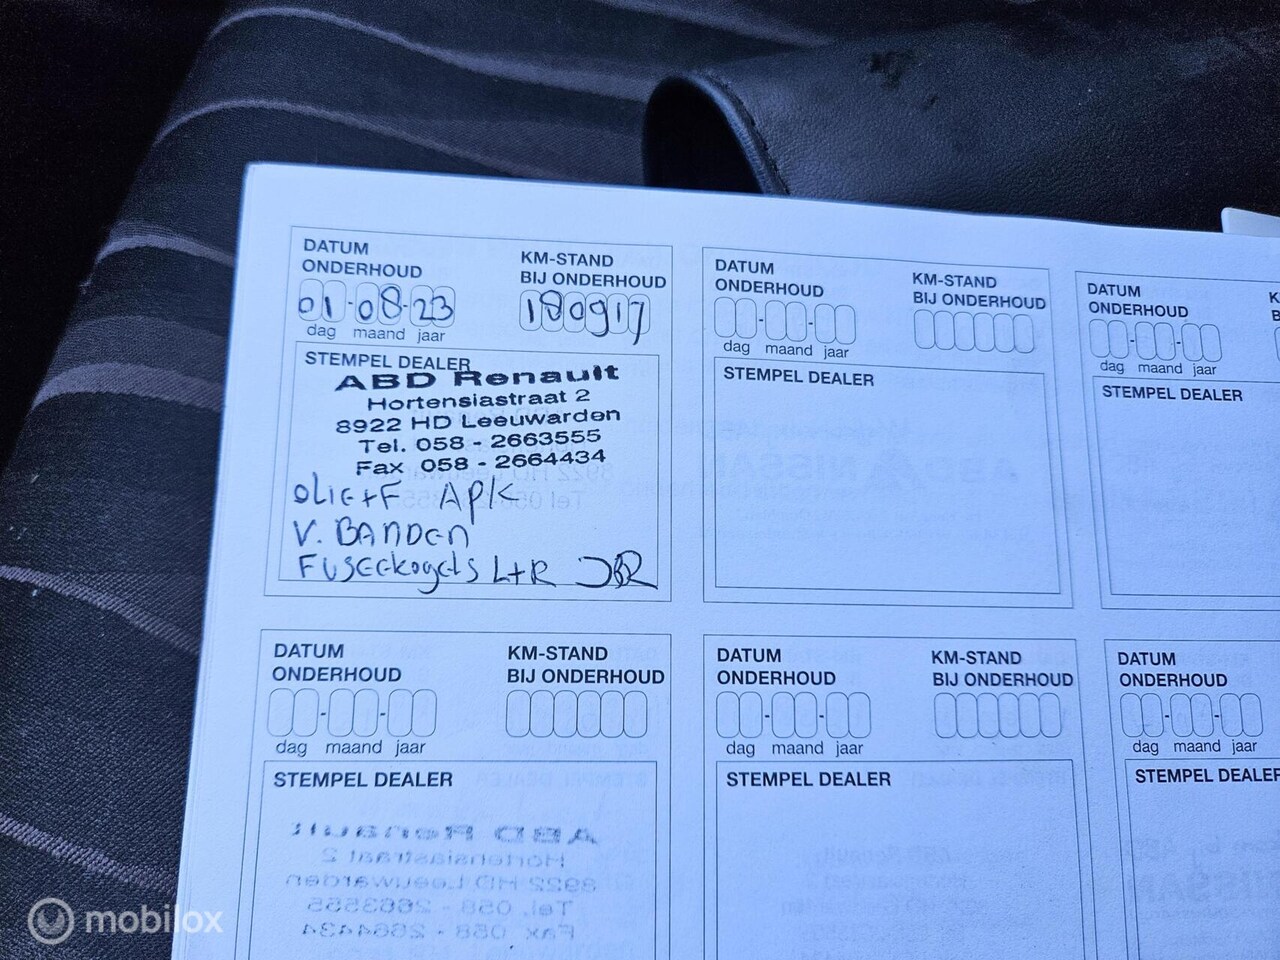 DATUM
ONDERHOUD
KM-STAND
BIJ ONDERHOUD
01-08-23
180917
dag maand jaar
STEMPEL DEALER
ABD Renault
Hortensiastraat 2
8922 HD Leeuwarden
Tel. 058 - 2663555
Fax 058 - 2664434
OLIE+F APK
V. BANDEN
FUSEEKOGELS L+R
DATUM
ONDERHOUD
KM-STAND
BIJ ONDERHOUD
dag maand jaar
STEMPEL DEALER
DATUM
ONDERHOUD
dag maand jaar
STEMPEL DEALER
DATUM
ONDERHOUD
KM-STAND
BIJ ONDERHOUD
dag maand jaar
STEMPEL DEALER
DATUM
ONDERHOUD
KM-STAND
BIJ ONDERHOUD
dag maand jaar
STEMPEL DEALER
DATUM
ONDERHOUD
dag maand jaar
STEMPEL DEALER
mobilox